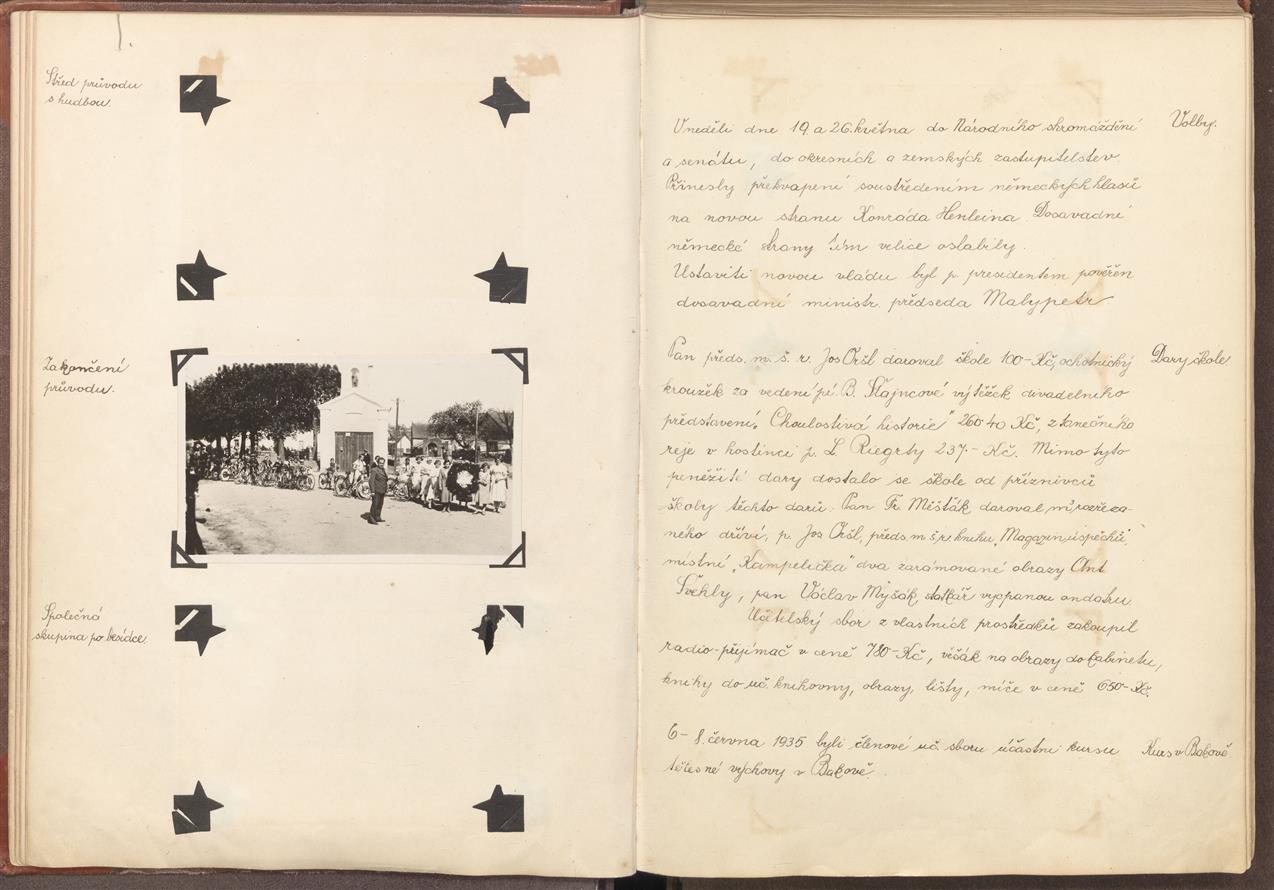 1.
Střed průvodu
s hudbou.
Zakončení
průvodu.
Společná
skupina po besídce.
V neděli dne 19. a 26. května do Národního shromáždění
Volby.
a senátu, do okresních a zemských zastupitelstev
Přinesly překvapení soustředením německých hlasů
na novou stranu Konráda Henleina. Dosavadní
německé strany tím velice oslabily.
Ustaviti novou vládu byl p. presidentem pověřen
dosavadní ministr. předseda Malypetr
Pan předs. m. š. r. Jos Oršl daroval škole 100-Kč, ochotnický
Dary škole.
kroužek za vedení pí. B. Štajncové výtěžek divadelního
představení „Choulostivá historie" 260·40 Kč, z tanečního
reje v hostinci p. L. Riegrty 237.- Kč. Mimo tyto
peněžité dary dostalo se škole od příznivců
školy těchto darů: Pan Fr. Měšťák daroval m³ rozřeza-
ného dříví, p. Jos Oršl, předs. m š r. knihu „Magazin úspěchů",
místní „Kampelička" dva zarámované obrazy Ant
Švehly, pan Václav Myšák, statkář vycpanou ondatru.
Učitelský sbor z vlastních prostředků zakoupil
radio-přijímač v ceně 780-Kč, věšák na obrazy do kabinetu,
knihy do uč. knihovny, obrazy, lišty, míče v ceně 650-Kč.
6-8. června 1935 byli členové uč. sboru účastni kursu
Kurs v Bakově.
tělesné výchovy v Bakově.